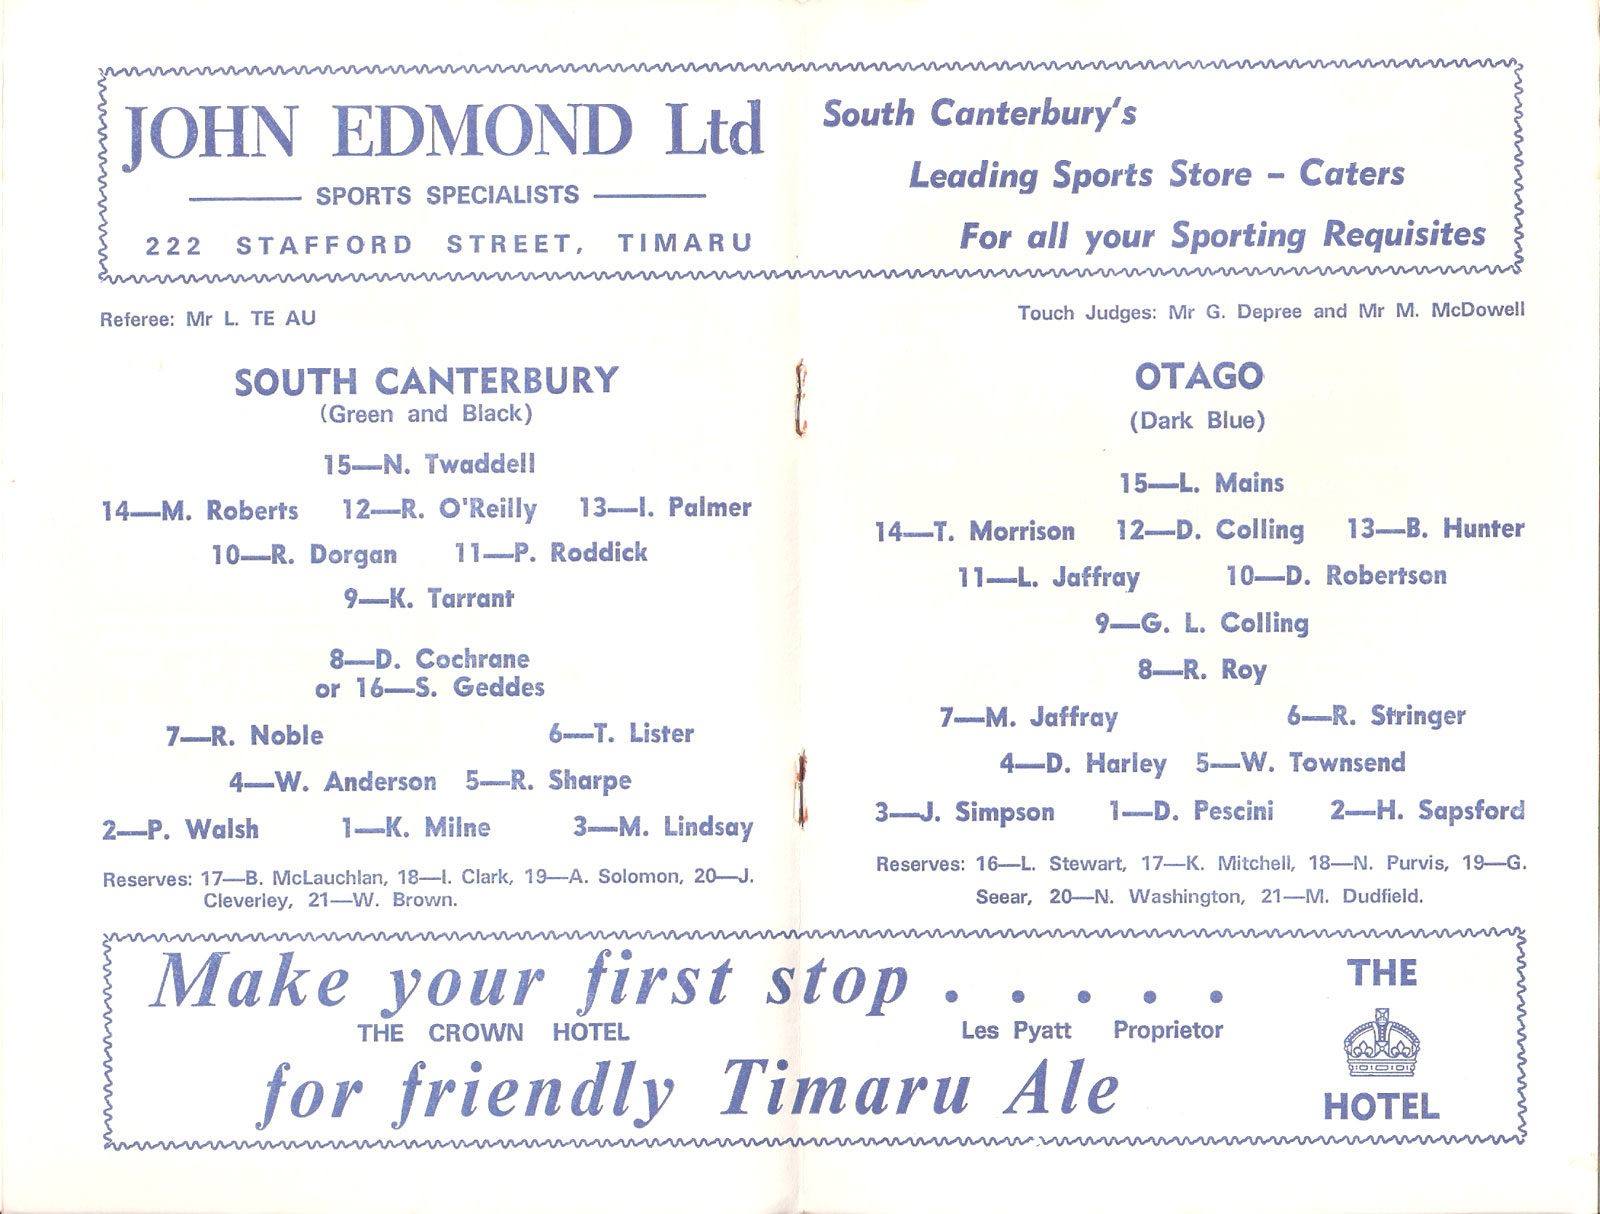 JOHN EDMOND Ltd
SPORTS SPECIALISTS
222 STAFFORD STREET, TIMARU
South Canterbury's
Leading Sports Store - Caters
For all your Sporting Requisites
Referee: Mr L. TE AU
SOUTH CANTERBURY
(Green and Black)
15—N. Twaddell
14—M. Roberts 12—R. O'Reilly 13—I. Palmer
10—R. Dorgan 11—P. Roddick
9—K. Tarrant
8—D. Cochrane
or 16—S. Geddes
7—R. Noble 6—T. Lister
4—W. Anderson 5—R. Sharpe
2—P. Walsh 1—K. Milne 3—M. Lindsay
Reserves: 17—B. McLauchlan, 18—I. Clark, 19—A. Solomon, 20—J.
Cleverley, 21—W. Brown.
Touch Judges: Mr G. Depree and Mr M. McDowell
OTAGO
(Dark Blue)
15—L. Mains
14—T. Morrison 12—D. Colling 13—B. Hunter
11—L. Jaffray 10—D. Robertson
9—G. L. Colling
8—R. Roy
7—M. Jaffray 6—R. Stringer
4—D. Harley 5—W. Townsend
3—J. Simpson 1—D. Pescini 2—H. Sapsford
Reserves: 16—L. Stewart, 17—K. Mitchell, 18—N. Purvis, 19—G.
Seear, 20—N. Washington, 21—M. Dudfield.
Make your first stop . . . . .
THE CROWN HOTEL Les Pyatt Proprietor
for friendly Timaru Ale
THE
HOTEL